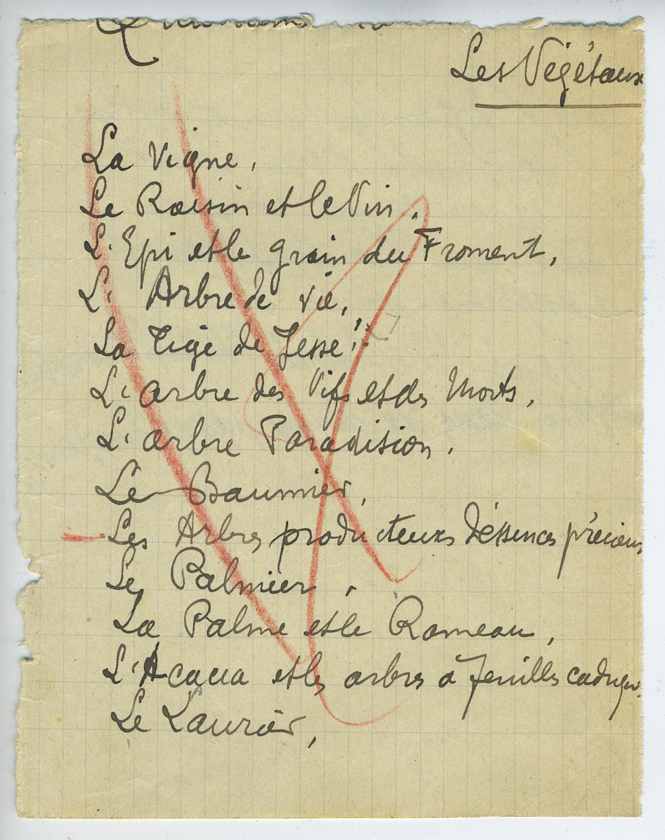 Les Végétaux
La Vigne,
Le Raisin et le Vin.
L'Epi et le grain du Froment,
L' Arbre de Vie,
La Tige de Jessé
L'arbre des Vifs et des Morts,
L'arbre Paradision.
Le Baumier,
Les Arbres producteurs d'éssences précieus
Le Palmier,
La Palme et le Rameau,
L'Acacia et les arbres à feuilles caduques
Le Laurier,